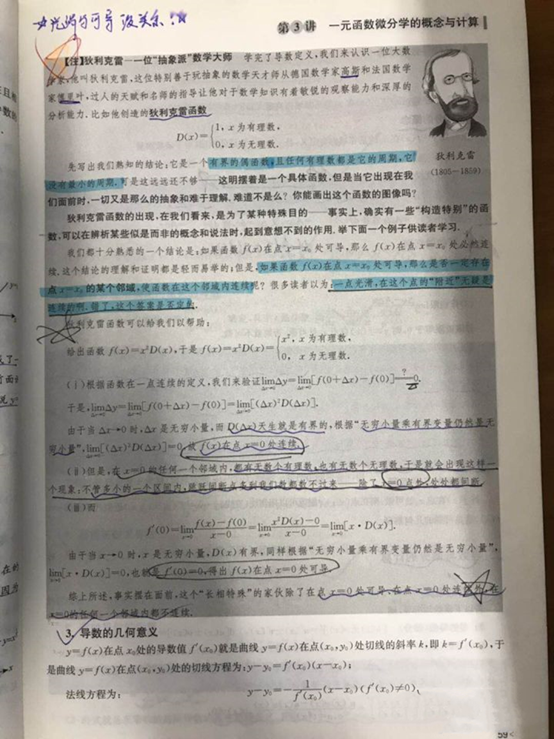 第3讲 一元函数微分学的概念与计算
【注】狄利克雷——一位“抽象派”数学大师 学完了导数定义,我们来认识一位大数
学家,他叫狄利克雷,这位特别善于抽象的数学天才师从德国数学家高斯和法国数学
家傅里叶,过人的天赋和名师的指导让他对于数学知识有着敏锐的观察能力和深厚的
分析能力.比如他创造的狄利克雷函数
D(x)={1, x为有理数,
0, x为无理数.
狄利克雷
(1805—1859)
先写出我们熟知的结论:它是一个有界的偶函数,且任何有理数都是它的周期,它
没有最小的周期.可是这远远还不够——这明摆着是一个具体函数,但是当它出现在我
们面前时,一切又是那么的抽象和难于理解,难道不是么?你能画出这个函数的图像吗?
狄利克雷函数的出现,在我们看来,是为了某种特殊目的——事实上,确实有一些“构造特别”的函
数,可以在辨析某些似是而非的概念和说法时,起到意想不到的作用.举下面一个例子供读者学习.
我们都十分熟悉的一个结论是:如果函数 f(x)在点 x=x₀ 处可导,那么 f(x)在点 x=x₀ 处必然连
续.这个结论的理解和证明都是轻而易举的;但是,如果函数 f(x)在点 x=x₀ 处可导,那么是否一定存在
点 x=x₀ 的某个邻域,使函数在这个邻域内连续呢?很多读者以为:一点光滑,在这个点的“附近”无疑是
连续的啊.错了,这个答案是否定的.
狄利克雷函数可以给我们以帮助:
给出函数 f(x)=x²D(x),于是 f(x)=x²D(x)={x², x为有理数,
0, x为无理数.
(ⅰ)根据函数在一点连续的定义,我们来验证limΔy=lim[f(0+Δx)-f(0)]=?0.
于是,limΔy=lim[f(0+Δx)-f(0)]=lim[(Δx)²D(Δx)].
由于当 Δx→0 时,Δx 是无穷小量,而 D(Δx)天生就是有界的,根据“无穷小量乘有界变量仍然是无
穷小量”,lim[(Δx)²D(Δx)]=0,故 f(x)在点 x=0 处连续.
(ⅱ)但是,在 x=0 的任何一个邻域内,都有无数个有理数,也有无数个无理数,于是就会出现这样一
个现象:不管多小的一个区间内,
除了 x=0 点外处处都间断.
(ⅲ)而
f′(0)=lim f(x)-f(0)/x-0=lim x²D(x)-0/x-0=lim[x·D(x)],
由于当 x→0 时,x 是无穷小量,D(x)有界,同样根据“无穷小量乘有界变量仍然是无穷小量”,
lim[x·D(x)]=0,也就是 f′(0)=0,得出 f(x)在点 x=0 处可导.
综上所述,事实摆在面前,这个“长相特殊”的家伙除了在点 x=0 处可导、在点 x=0 处连续外,在
x=0 的任何一个邻域内都不连续.
3. 导数的几何意义
y=f(x)在点 x₀ 处的导数值 f′(x₀)就是曲线 y=f(x)在点(x₀,y₀)处切线的斜率 k,即 k=f′(x₀),于
是曲线 y=f(x)在点(x₀,y₀)处的切线方程为:y-y₀=f′(x₀)(x-x₀);
法线方程为: y-y₀=-1/f′(x₀)(x-x₀)(f′(x₀)≠0).
59